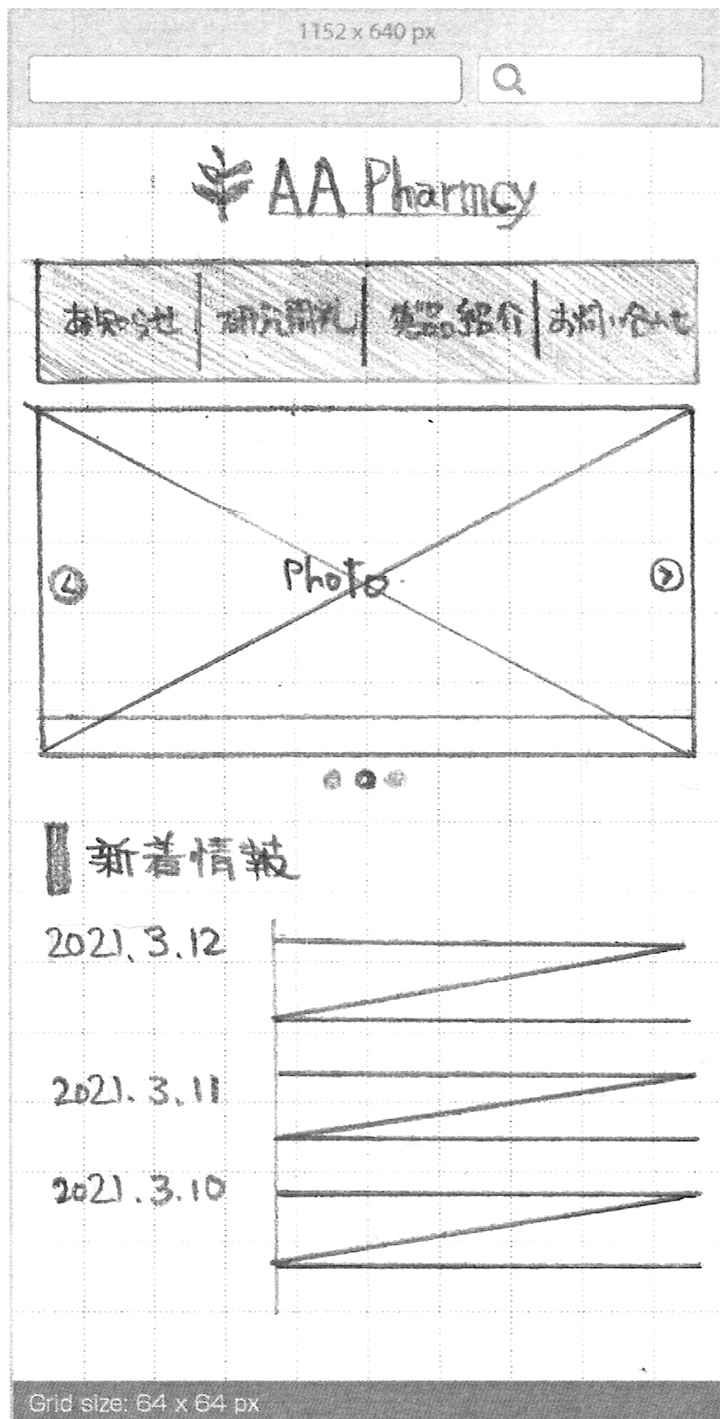 1152 x 640 px
AA Pharmcy
お知らせ 研究開発 製品紹介 お問い合わせ
Photo
新着情報
2021.3.12
2021.3.11
2021.3.10
Grid size: 64 x 64 px